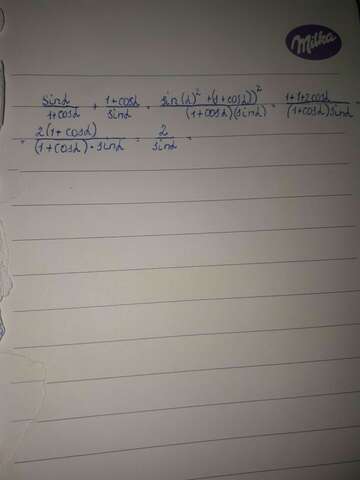 Milka
sinα/(1+cosα) + (1+cosα)/sinα = (sin(α)² + (1+cosα))²/((1+cosα)(sinα)) = (1+1+2cosα)/((1+cosα)sinα)
= 2(1+cosα)/((1+cosα)·sinα) = 2/sinα =